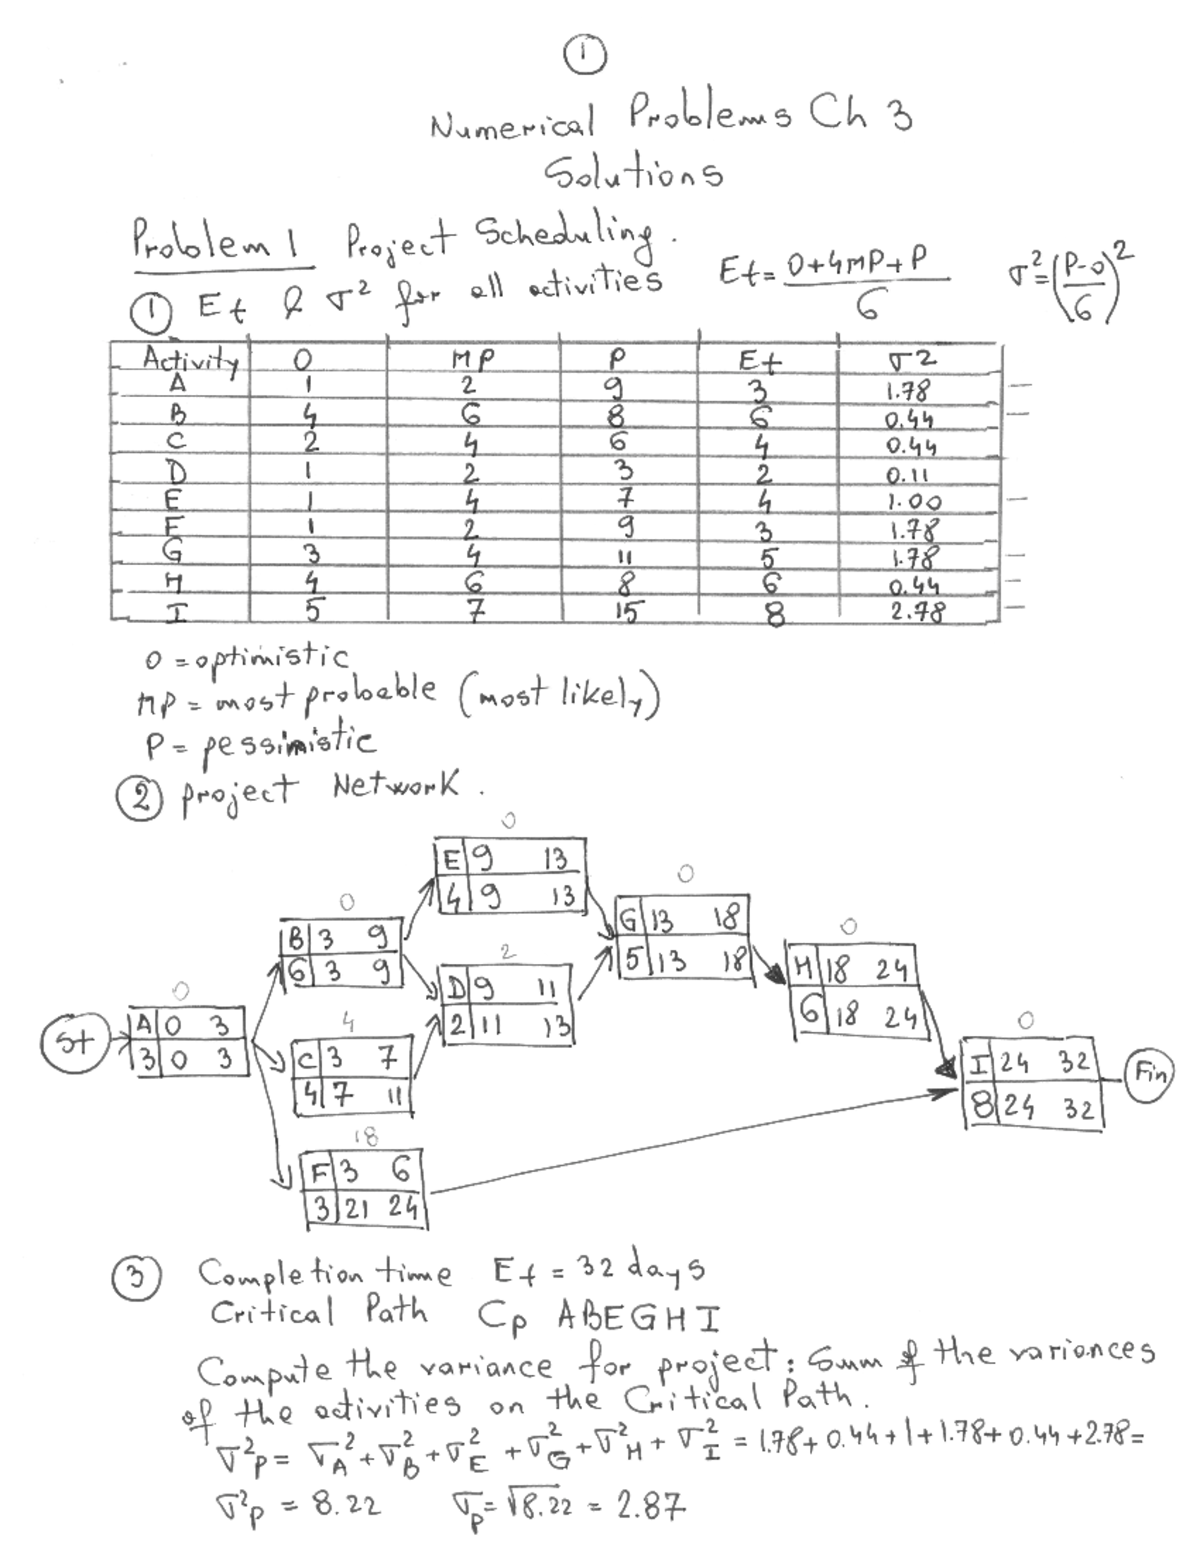 1
Numerical Problems Ch 3
Solutions
Problem 1 Project Scheduling.
① Et & σ² for all activities Et = O+4MP+P / 6 σ² = (P-O / 6)²
Activity O MP P Et σ2
A 1 2 9 3 1.78
B 4 6 8 6 0.44
C 2 4 6 4 0.44
D 1 2 3 2 0.11
E 1 4 7 4 1.00
F 1 2 9 3 1.78
G 3 4 11 5 1.78
H 4 6 8 6 0.44
I 5 7 15 8 2.78
O = optimistic
MP = most probable (most likely)
P = pessimistic
② project Network.
0
E 9 13
4 9 13
0
G 13 18
5 13 18
0
B 3 9
6 3 9
0
H 18 24
6 18 24
2
D 9 11
2 11 13
0
A 0 3
3 0 3
St
4
C 3 7
4 7 11
0
I 24 32
8 24 32
Fin
18
F 3 6
3 21 24
③ Completion time Et = 32 days
Critical Path Cp ABEGHI
Compute the variance for project: Sum of the variances
of the activities on the Critical Path.
σ²p = σ²A + σ²B + σ²E + σ²G + σ²H + σ²I = 1.78 + 0.44 + 1 + 1.78 + 0.44 + 2.78 =
σ²p = 8.22 σp = √8.22 = 2.87